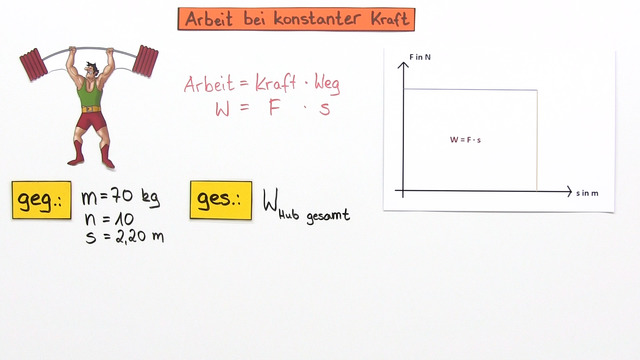 Arbeit bei konstanter Kraft
Arbeit = Kraft · Weg
W = F · s
F in N
W = F · s
s in m
geg.:
m = 70 kg
n = 10
s = 2,20 m
ges.:
W Hub gesamt